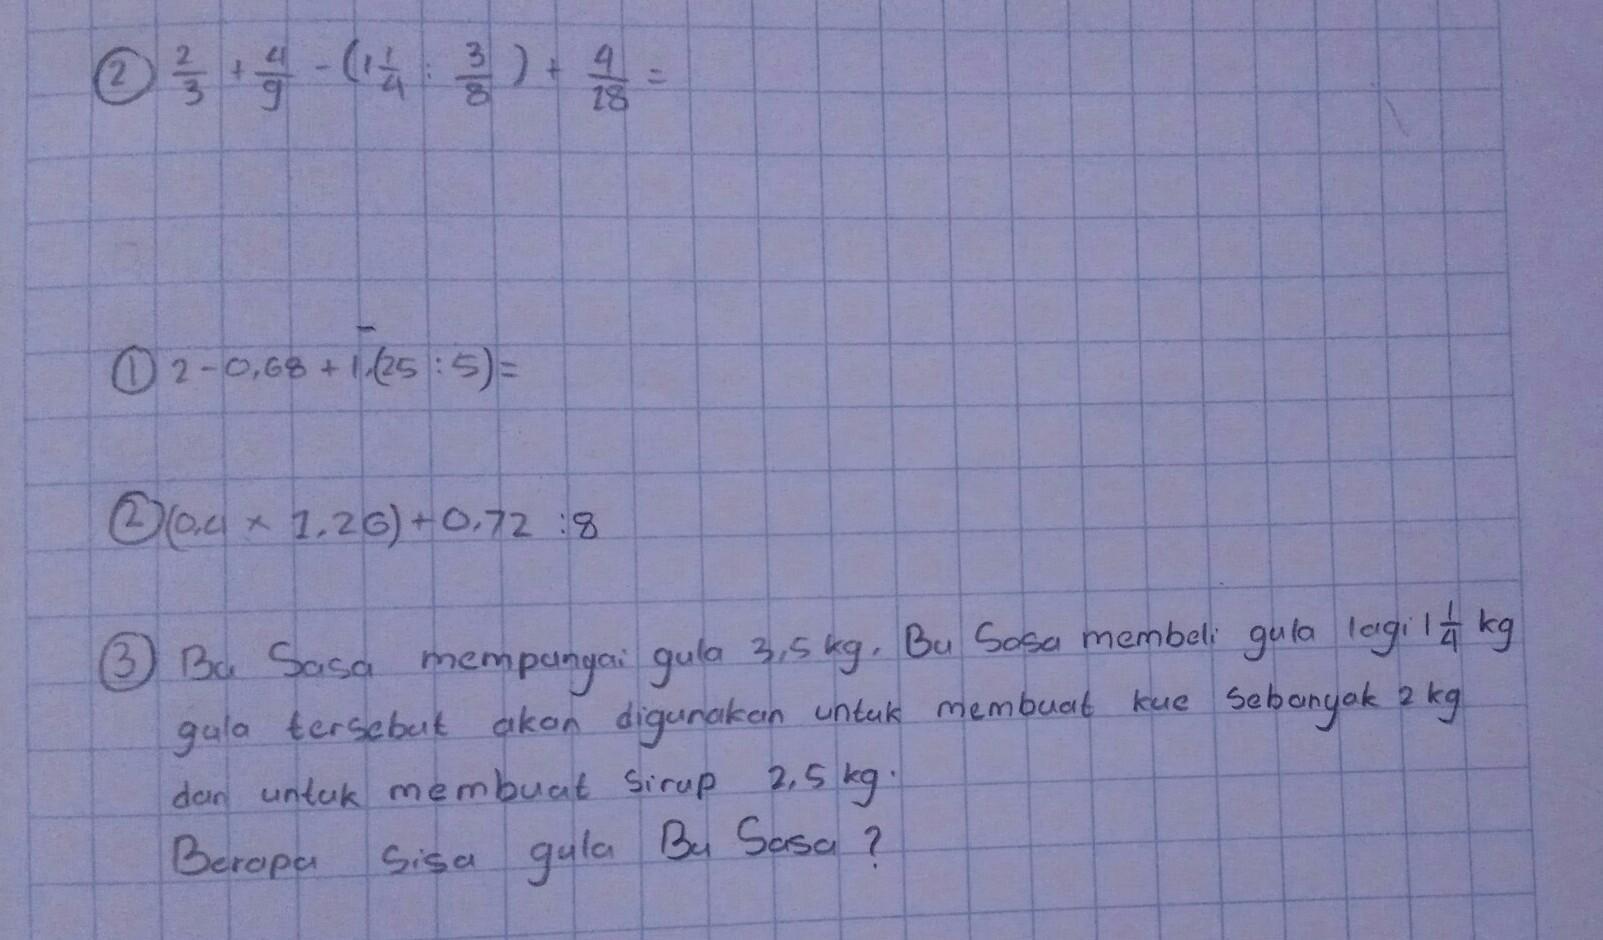 ② 2/3 + 4/9 - (1 1/4 : 3/8) + 4/18 =
① 2 - 0,68 + 1,(25 : 5) =
② (0,4 × 1,26) + 0,72 : 8
③ Bu Sasa mempunyai gula 3,5 kg. Bu Sasa membeli gula lagi 1 1/4 kg
gula tersebut akan digunakan untuk membuat kue sebanyak 2 kg
dan untuk membuat sirup 2,5 kg.
Berapa sisa gula Bu Sasa ?